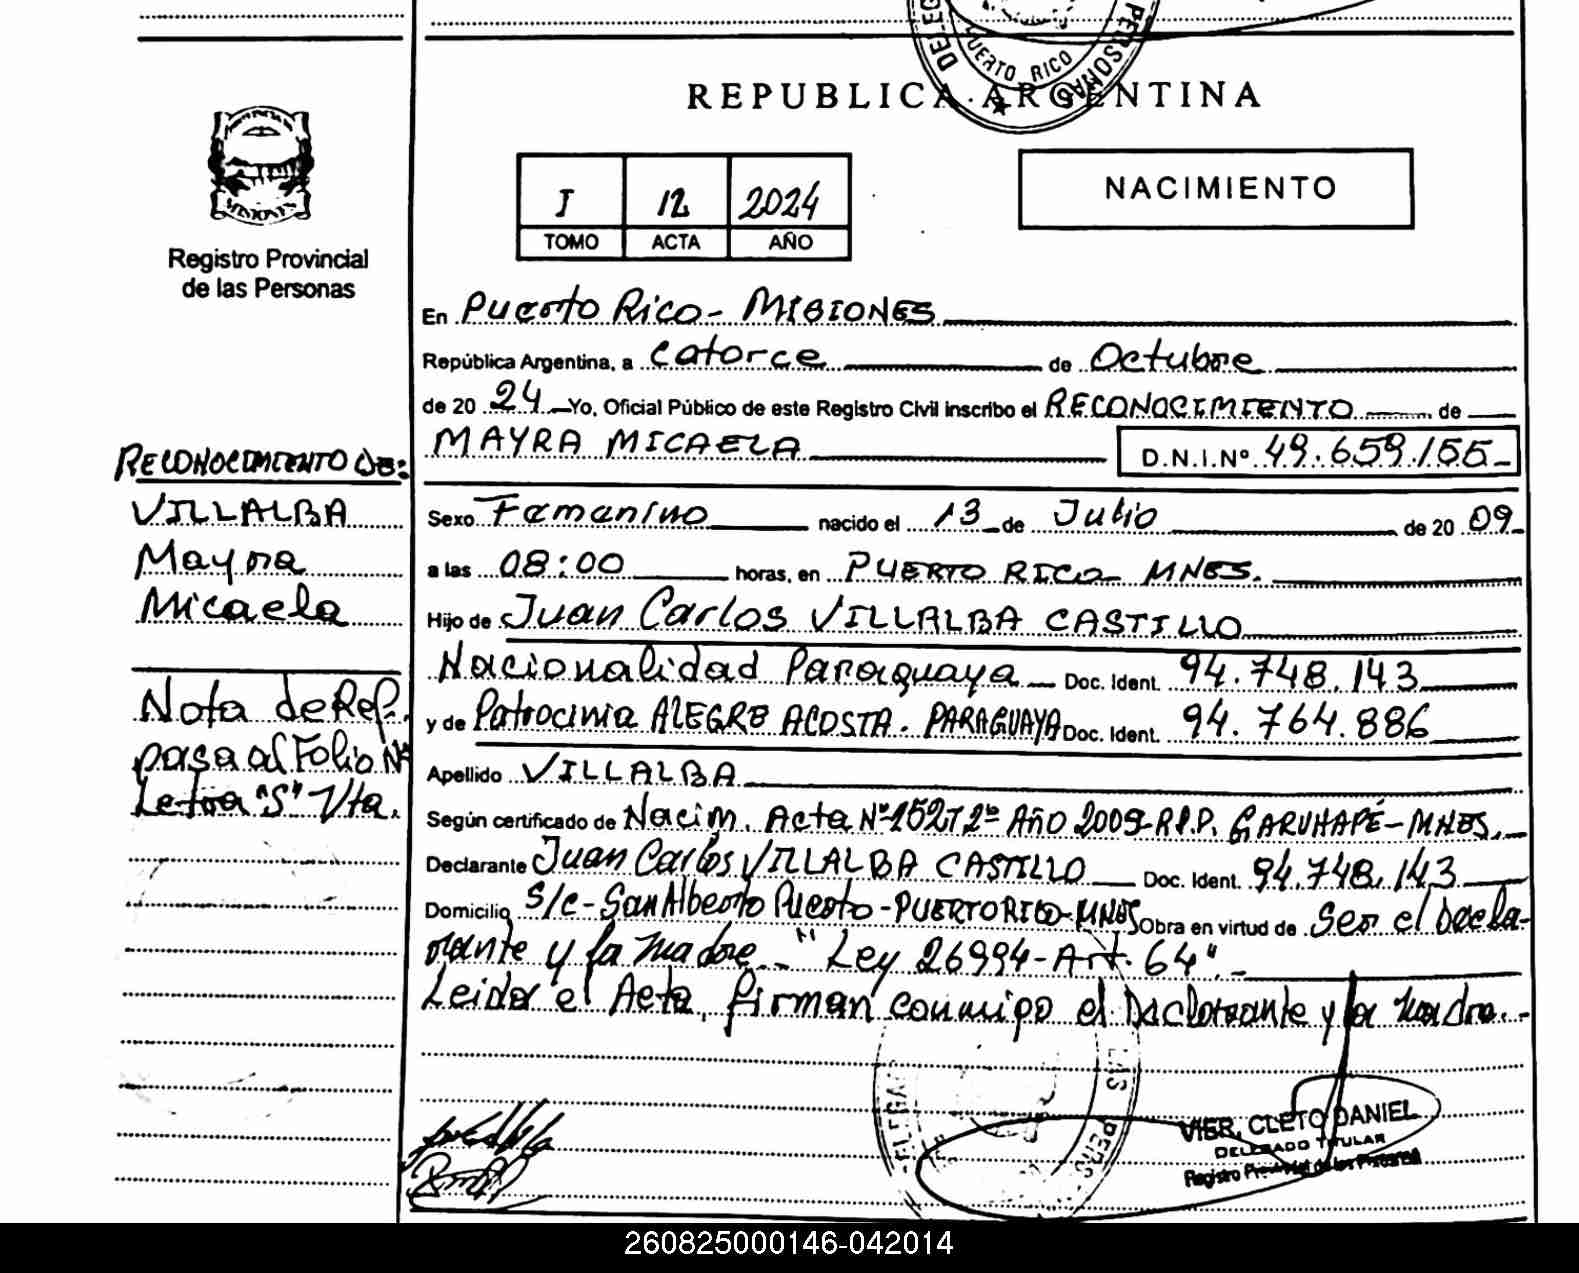 DELEG
PERSONAS
PUERTO RICO
REPUBLICA ARGENTINA
PROVINCIA DE
MISIONES
Registro Provincial
de las Personas
I 12 2024
TOMO ACTA AÑO
NACIMIENTO
En Puerto Rico - MISIONES
República Argentina, a Catorce de Octubre
de 20 24 Yo, Oficial Público de este Registro Civil inscribo el RECONOCIMIENTO de
MAYRA MICAELA D.N.I.Nº 49.659.155
RECONOCIMIENTO DE:
VILLALBA
Mayra
Micaela
Nota de Ref.
pasa al Folio Nº
Letra "S" Vta.
Sexo Femenino nacido el 13 de Julio de 20 09
a las 08:00 horas, en PUERTO RICO MNES.
Hijo de Juan Carlos VILLALBA CASTILLO
Nacionalidad Paraguaya Doc. Ident. 94.748.143
y de Patrocinia ALEGRE ACOSTA. PARAGUAYA Doc. Ident. 94.764.886
Apellido VILLALBA
Según certificado de Nacim. Acta Nº 152 T 2º Año 2009 R.P.P. GARUHAPÉ - MNES.
Declarante Juan Carlos VILLALBA CASTILLO Doc. Ident. 94.748.143
Domicilio S/C - San Alberto Puerto - PUERTO RICO - MNES Obra en virtud de Ser el Decla-
rante y la madre. "Ley 26994 - Art. 64".-
Leida el Acta, firman conmigo el Declarante y la madre.-
LAS PERS
VIER, CLETO DANIEL
DELEGADO TITULAR
Registro Provincial de las Personas
260825000146-042014